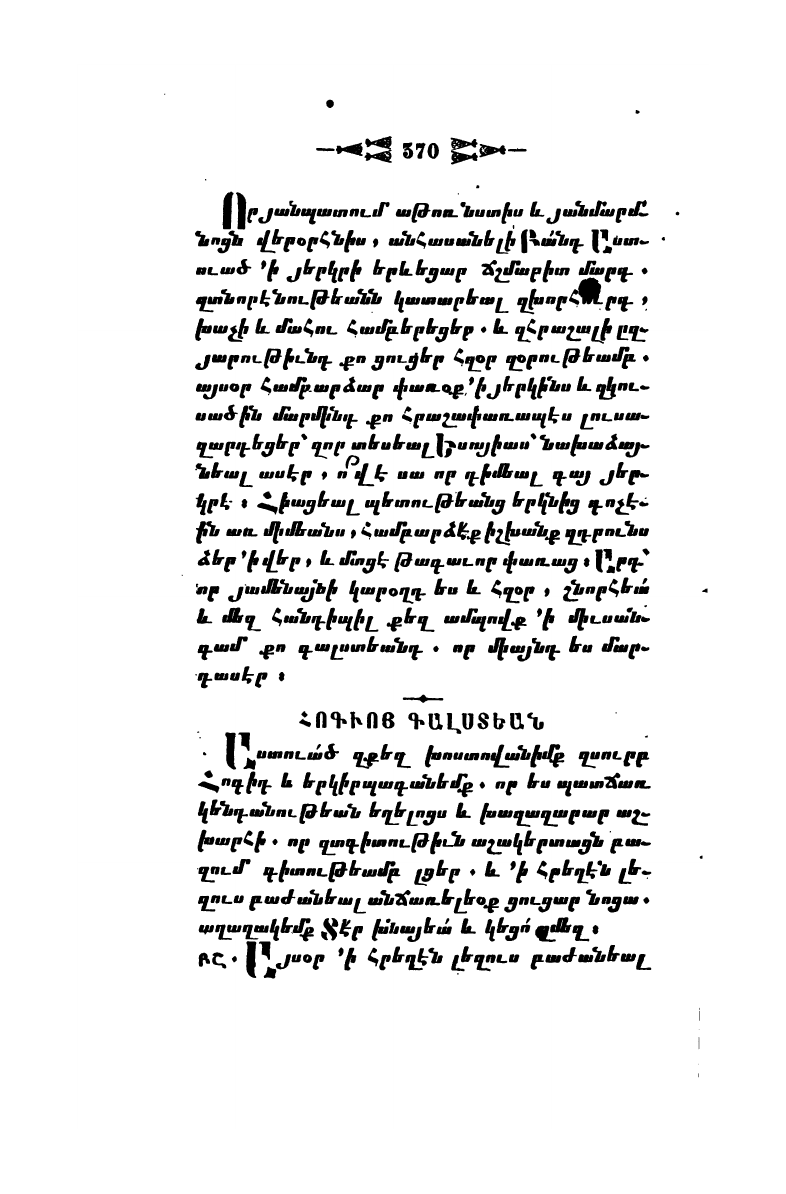 370
Որ յանպատում աթոռ նստիս և յանմարմ՟
նոցն վերօրհնիս, անհասանելի Բանդ Աստ-
ուած ՚ի յերկրի երևեցար ճշմարիտ մարդ .
զտնօրէնութեանն կատարեալ զխորհուրդ,
խաչի և մահու համբերեցեր . և զհրաշալի ըզ-
յարութիւնդ քո ցուցեր հզօր զօրութեամբ .
այսօր համբարձար փառօք ՚ի յերկինս և զկու-
սածին մարմինդ քո հրաշափառապէս լուսա-
զարդեցեր՝ զոր տեսեալ Եսայիաս՝ նախաձայ-
նեալ ասէր, ո՞վ է սա որ դիմեալ գայ յեր-
կրէ ։ Հիացեալ պետութեանց երկնից գոչէ-
ին առ միմեանս, համբարձէք իշխանք զդրունս
ձեր ՚ի վեր, և մտցէ թագաւոր փառաց ։ Արդ՝
որ յամենայնի կարօղդ ես և հզօր, շնորհեա՛
և մեզ հանդիպիլ քեզ ամպովք ՚ի միւսան-
գամ քո գալստեանդ . որ միայնդ ես մար-
դասէր ։
ՀՈԳԻՈՑ ԳԱԼՍՏԵԱՆ
Աստուած զքեզ խոստովանիմք զսուրբ
Հոգիդ և երկիրպագանեմք . որ ես պատճառ
կենդանութեան եղելոցս և խաղաղարար աշ-
խարհի . որ զտգիտութիւն աշակերտացն բա-
զում գիտութեամբ լցեր . և ՚ի հրեղէն լե-
զուս բաժանեալ անճառելեօք ցուցար նոցա .
աղաղակեմք Տէր խնայեա՛ և կեցո՛ զմեզ ։
ԲՇ . Այսօր ՚ի հրեղէն լեզուս բաժանեալ